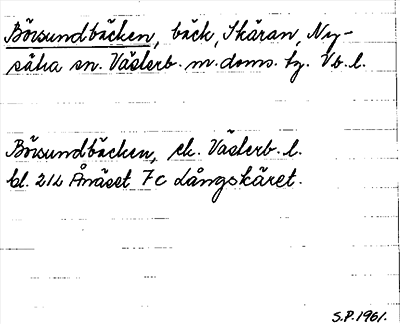 Börsundbäcken, bäck, Skäran, Ny-
sätra sn. Västerb. m. doms. tg. Vb. l.
Börsundbäcken, ek. Västerb. l.
bl. 212 Ånäset 7c Långskäret.
S.P. 1961.